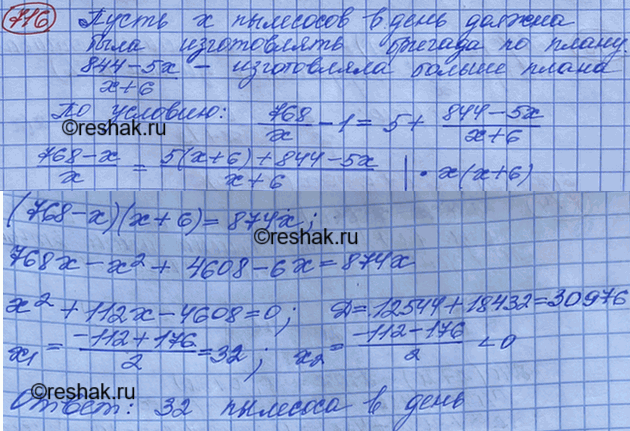 716 Пусть x пылесосов в день должна
была изготовлять бригада по плану.
(844-5x)/(x+6) - изготовляла больше плана
По условию: 768/x - 1 = 5 + (844-5x)/(x+6)
©reshak.ru
(768-x)/x = (5(x+6)+844-5x)/(x+6) | • x(x+6)
(768-x)(x+6)=874x;
©reshak.ru
768x-x²+4608-6x=874x
x²+112x-4608=0; D=12544+18432=30976
x₁ = (-112+176)/2 = 32; x₂ = (-112-176)/2 <0
©reshak.ru
Ответ: 32 пылесоса в день